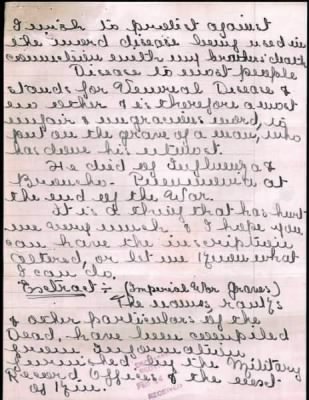 I wish to protest against
the word disease being used in
connection with my brothers death
Disease to most people
stands for Venereal Disease &
no other & is therefore a most
unfair & ungracious word, to
put on the grave of a man, who
has done his utmost.
He died of Influenza &
Broncho-Pneumonia at
the end of the War.
It is a thing that has hurt
me very much & I hope you
can have the inscription
altered, or let me know what
I can do.
Extract :- (Imperial War Graves.)
The names rank &
& other particulars of the
Dead, have been compiled
from information
furnished by the Military
Record Offices & the next
of Kin.
RECEIVED